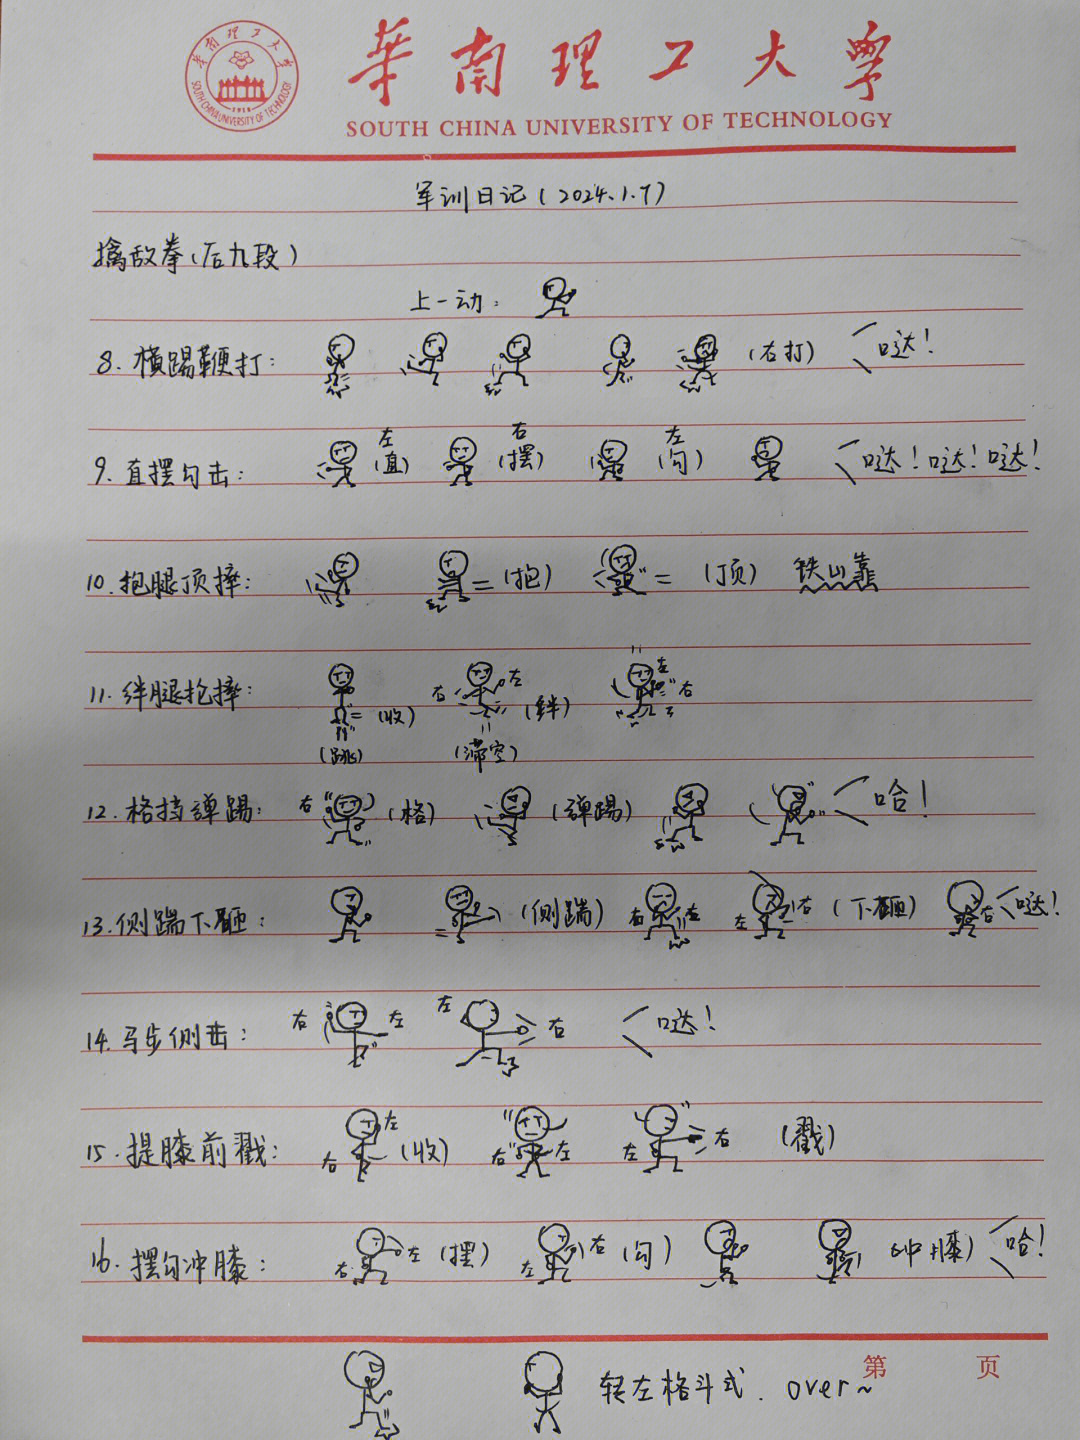 華南理工大學
SOUTH CHINA UNIVERSITY OF TECHNOLOGY
华南理工大学
SOUTH CHINA UNIVERSITY OF TECHNOLOGY
军训日记(2024.1.7)
擒敌拳(后九段)
上一动:
8. 横踢鞭打: (右打) 哒!
9. 直摆勾击: 左(直) 右(摆) 左(勾) 哒!哒!哒!
10. 抱腿顶摔: (抱) (顶) 铁山靠
11. 绊腿抱摔: (收) (跳) 右 左 (绊) (滞空) 左 右
12. 格挡弹踢: 右 (格) (弹踢) 哈!
13. 侧踹下砸: (侧踹) 右 左 左 右 (下砸) 右 哒!
14. 马步侧击: 右 左 左 右 哒!
15. 提膝前戳: 右 左 (收) 右 左 左 右 (戳)
16. 摆勾冲膝: 右 左 (摆) 左 右 (勾) (冲膝) 哈!
第 页
转左格斗式. over~